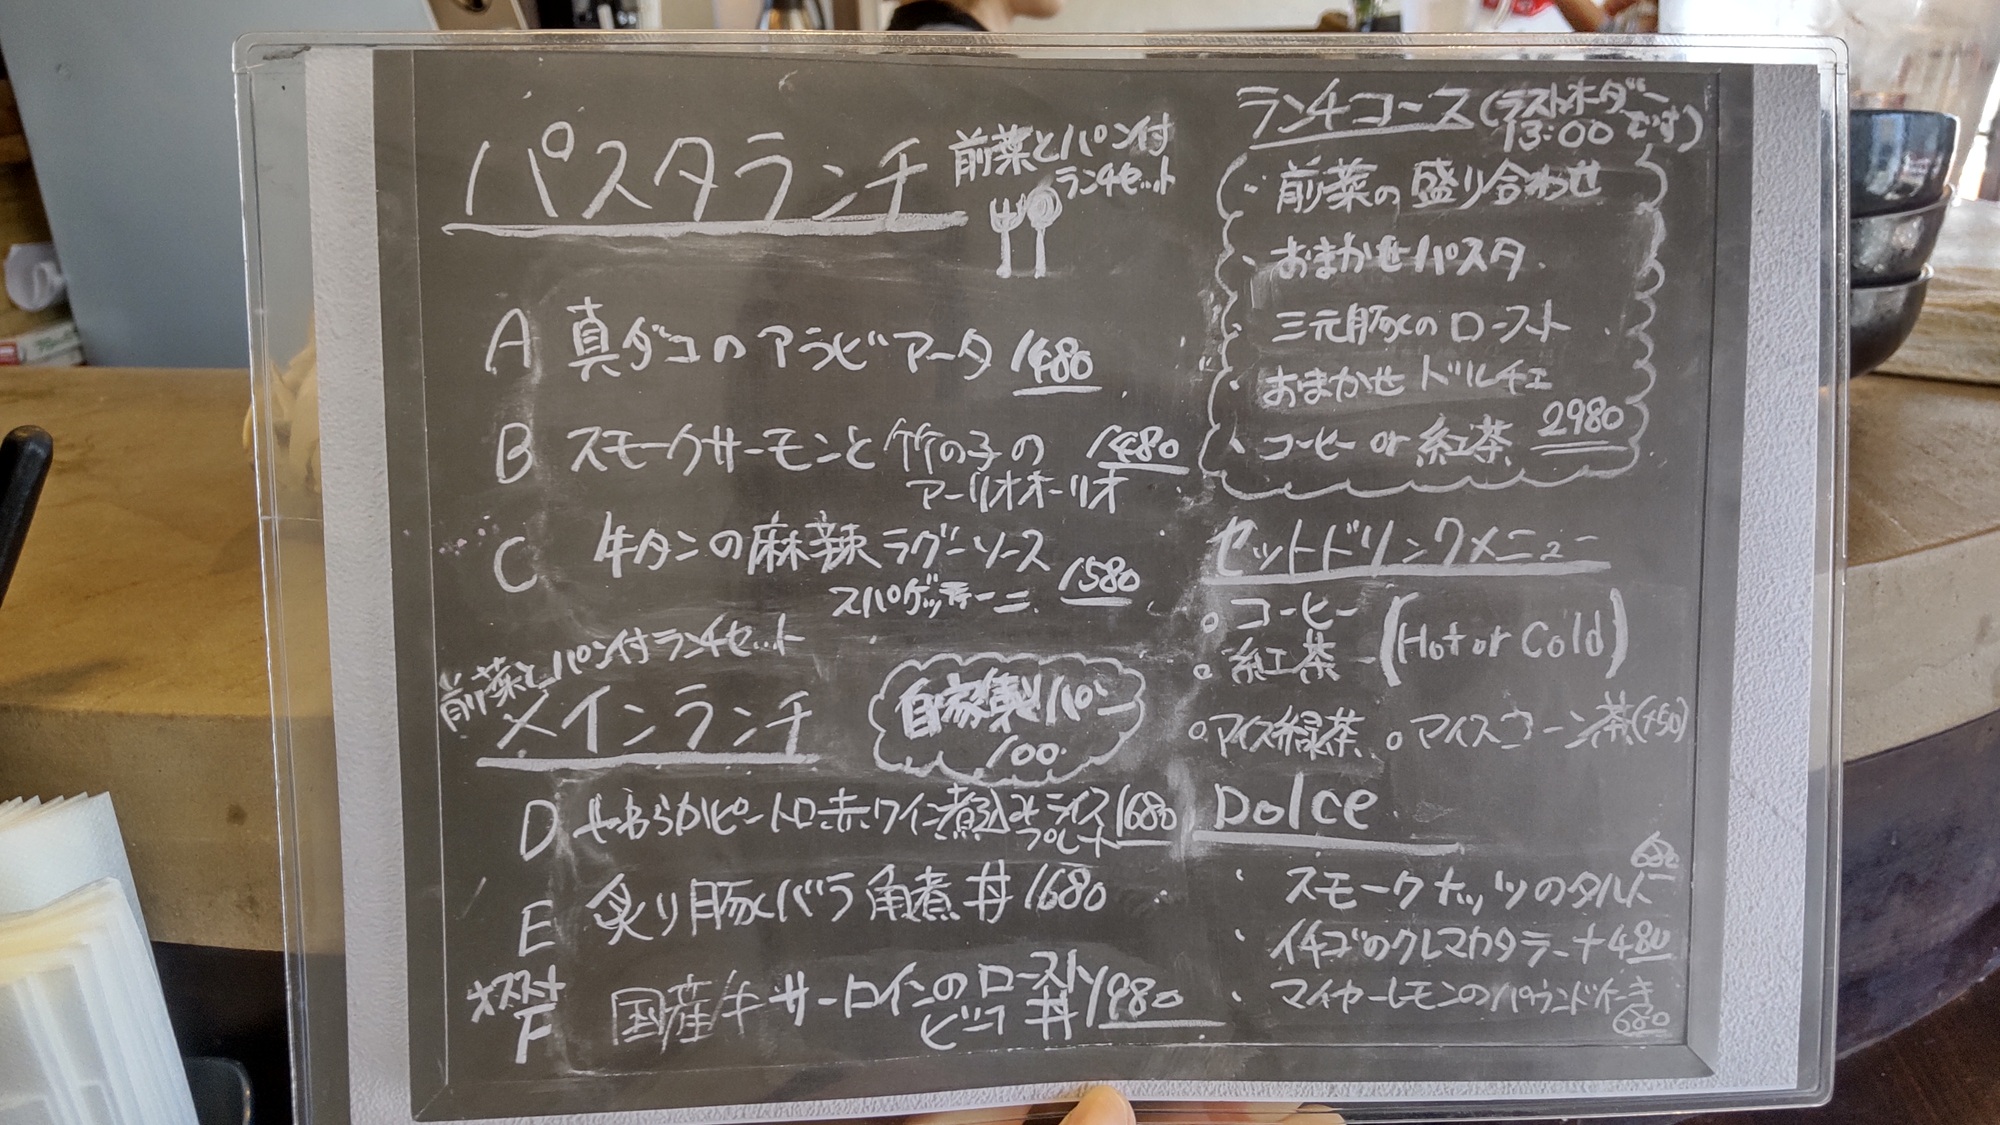 パスタランチ
前菜とパン付
ランチセット
A 真ダコのアラビアータ 1480
B スモークサーモンと竹の子の 1480
アーリオオーリオ
C 牛タンの麻辣ラグーソース
スパゲッティーニ 1580
前菜とパン付ランチセット
メインランチ
自家製パン
100
D やわらかビートロ赤ワイン煮込みライス 1680
プレート
E 炙り豚バラ角煮丼 1680
オススメ
F 国産牛サーロインのロースト
ビーフ丼 1980
ランチコース (ラストオーダー
13:00 です)
・前菜の盛り合わせ
・おまかせパスタ
・三元豚のロースト
・おまかせドルチェ
・コーヒー or 紅茶 2980
セットドリンクメニュー
○コーヒー
○紅茶 (Hot or Cold)
○アイス緑茶 ○アイスコーン茶(+50)
Dolce
・スモークナッツのタルト
・イチゴのクレマカタラーナ 480
・マイヤーレモンのパウンドケーキ